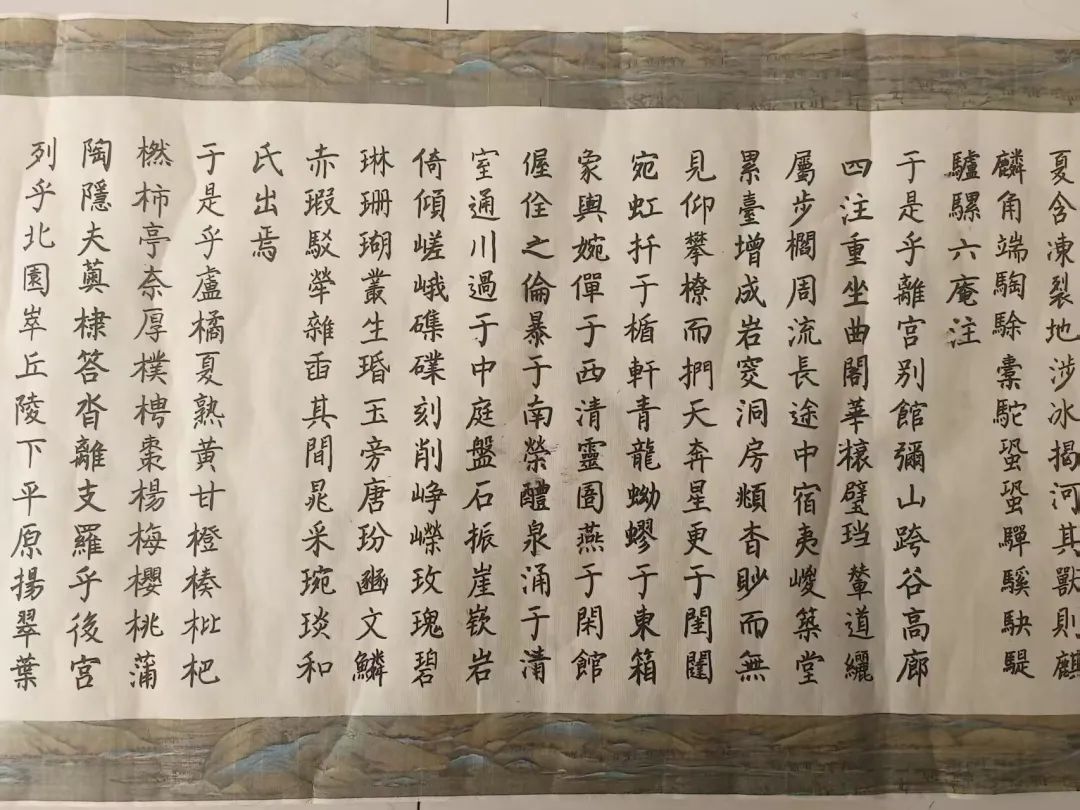 夏含凍裂地涉冰揭河其獸則麒
麟角端騊駼橐駝蛩蛩驒騱駃騠
驢騾六庵注
于是乎離宮别館彌山跨谷高廊
四注重坐曲閣華榱璧珰輦道纚
屬步櫩周流長途中宿夷嵕築堂
累臺增成岩窔洞房頫杳眇而無
見仰攀橑而捫天奔星更于閨闥
宛虹扦于楯軒青龍蚴蟉于東箱
象輿婉僤于西清靈圄燕于閑館
偓佺之倫暴于南榮醴泉涌于清
室通川過于中庭盤石振崖嶔岩
倚傾嵯峨磼礏刻削崢嶸玫瑰碧
琳珊瑚叢生瑉玉旁唐玢豳文鱗
赤瑕駁犖雜臿其間晁采琬琰和
氏出焉
于是乎盧橘夏熟黄甘橙楱枇杷
橪柿亭奈厚樸梬棗楊梅櫻桃蒲
陶隱夫薁棣答沓離支羅乎後宮
列乎北園崒丘陵下平原揚翠葉